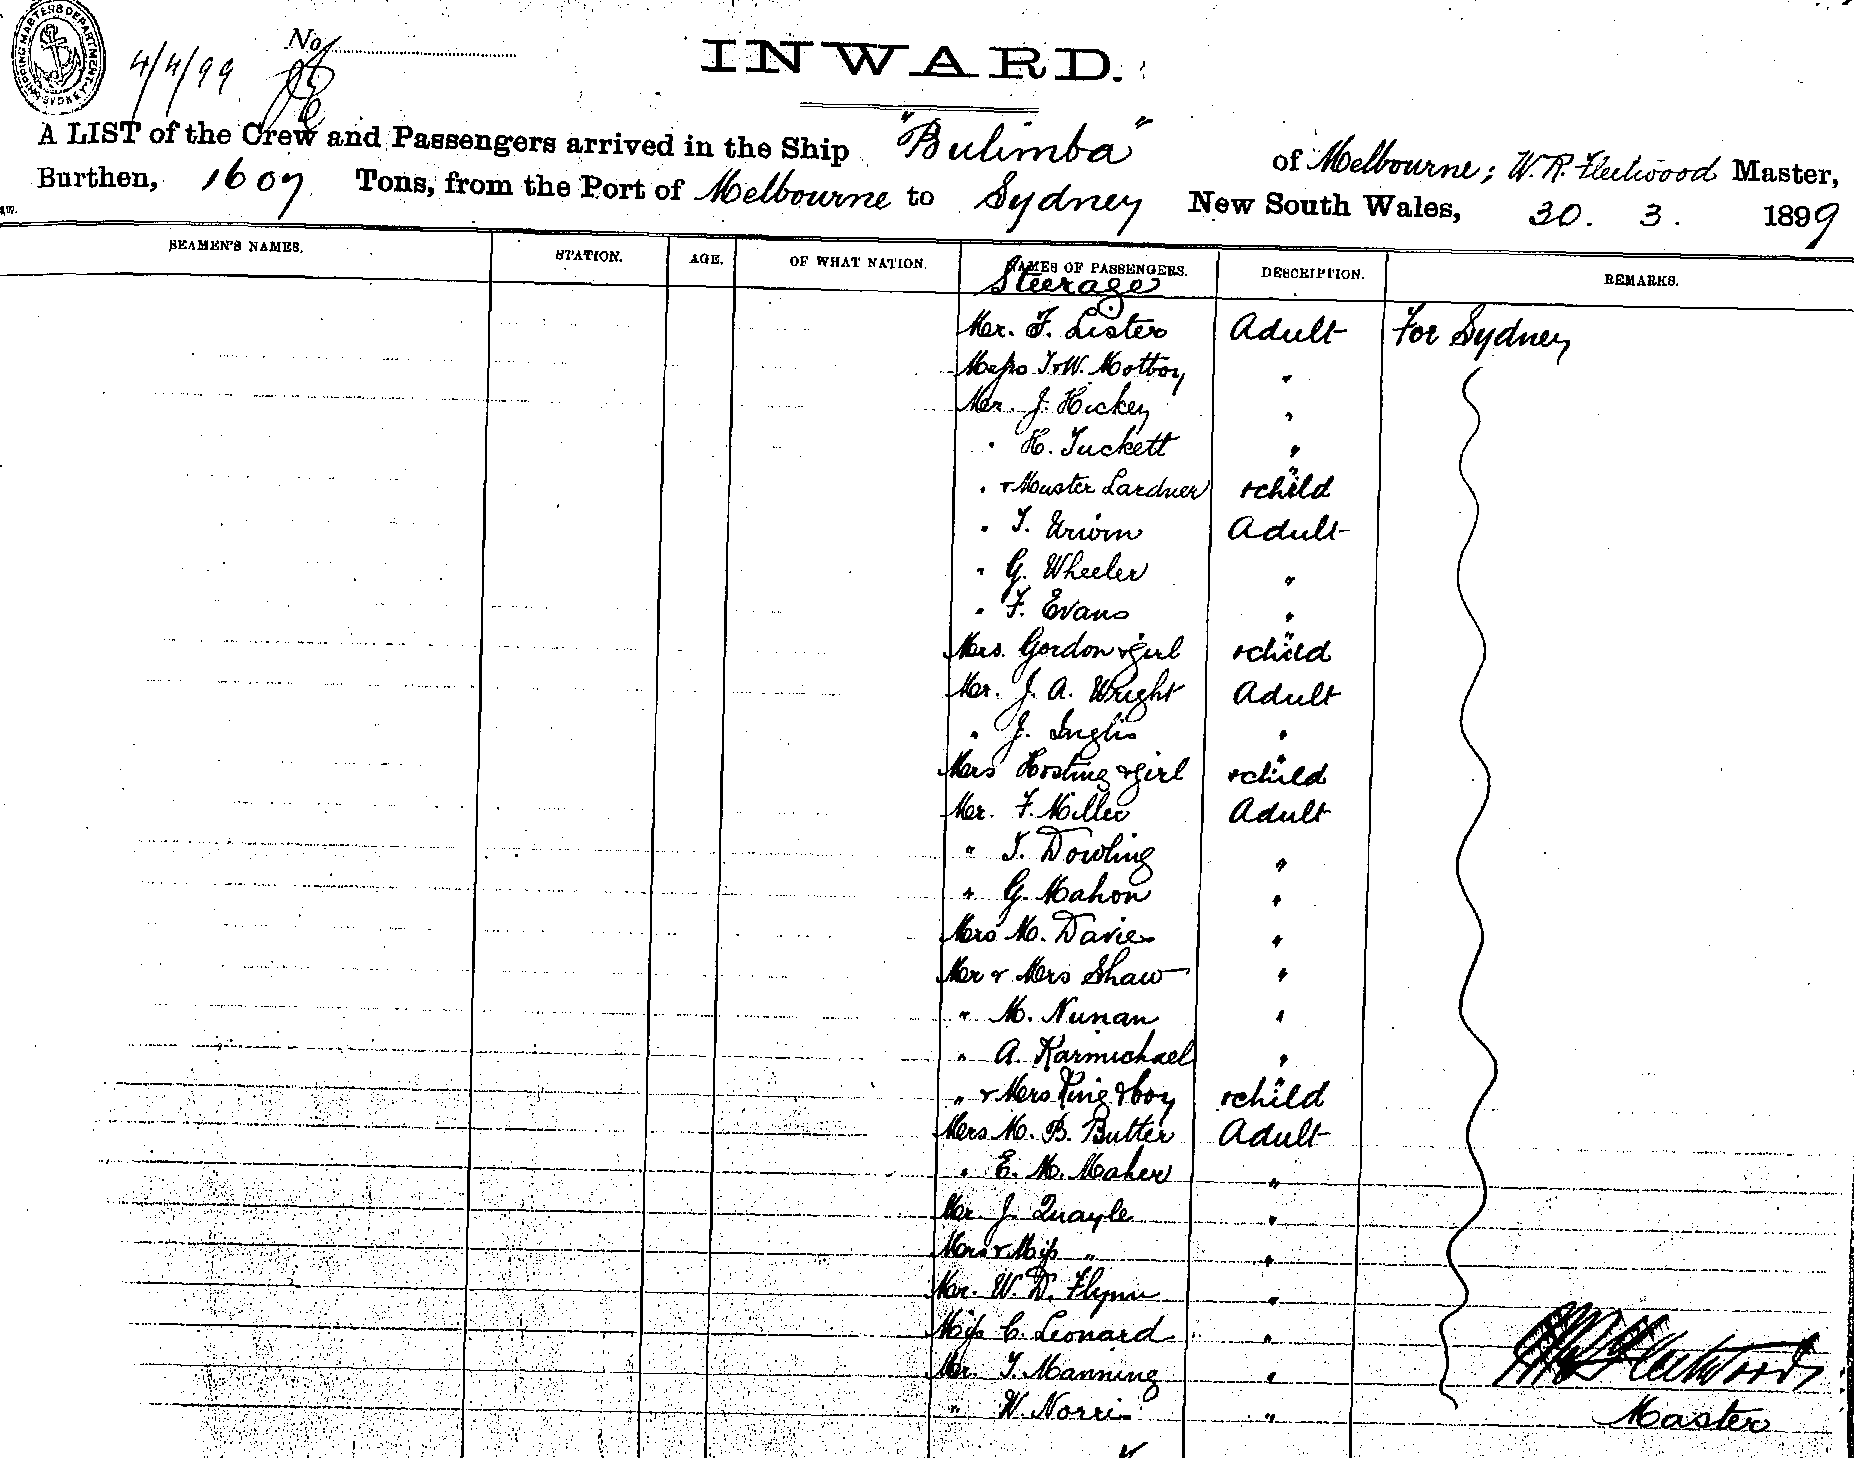 SHIPPING MASTERS DEPARTMENT SYDNEY
4/4/99
No
INWARD.
A LIST of the Crew and Passengers arrived in the Ship "Bulimba" of Melbourne; W. R. Fleetwood Master,
Burthen, 1607 Tons, from the Port of Melbourne to Sydney New South Wales, 30. 3. 1899
SEAMEN'S NAMES. STATION. AGE. OF WHAT NATION. NAMES OF PASSENGERS. DESCRIPTION. REMARKS.
Steerage
Mr. F. Lister Adult For Sydney
Messrs T & W. Mottoy "
Mr. J. Hickey "
" H. Tuckett "
" & Master Lardner " & child
" T. Adult
" G. Wheeler "
" F. Evans "
Mrs. Gordon & girl " & child
Mr. J. A. Wright Adult
" J. Inglis "
Mrs Hosting & girl " & child
Mr. F. Miller Adult
" T. Dowling "
" G. Mahon "
Mrs M. Davies "
Mr & Mrs Shaw "
" M. Nunan "
" A. Karmichael "
" & Mrs King & boy " & child
Mrs M. B. Butter Adult
" E. M. Maher "
Mr. J. Quayle "
Mrs & Miss " "
Mr. W. D. Flynn "
Miss C. Leonard "
Mr. T. Manning "
" W. Norris "
W R Fleetwood
Master